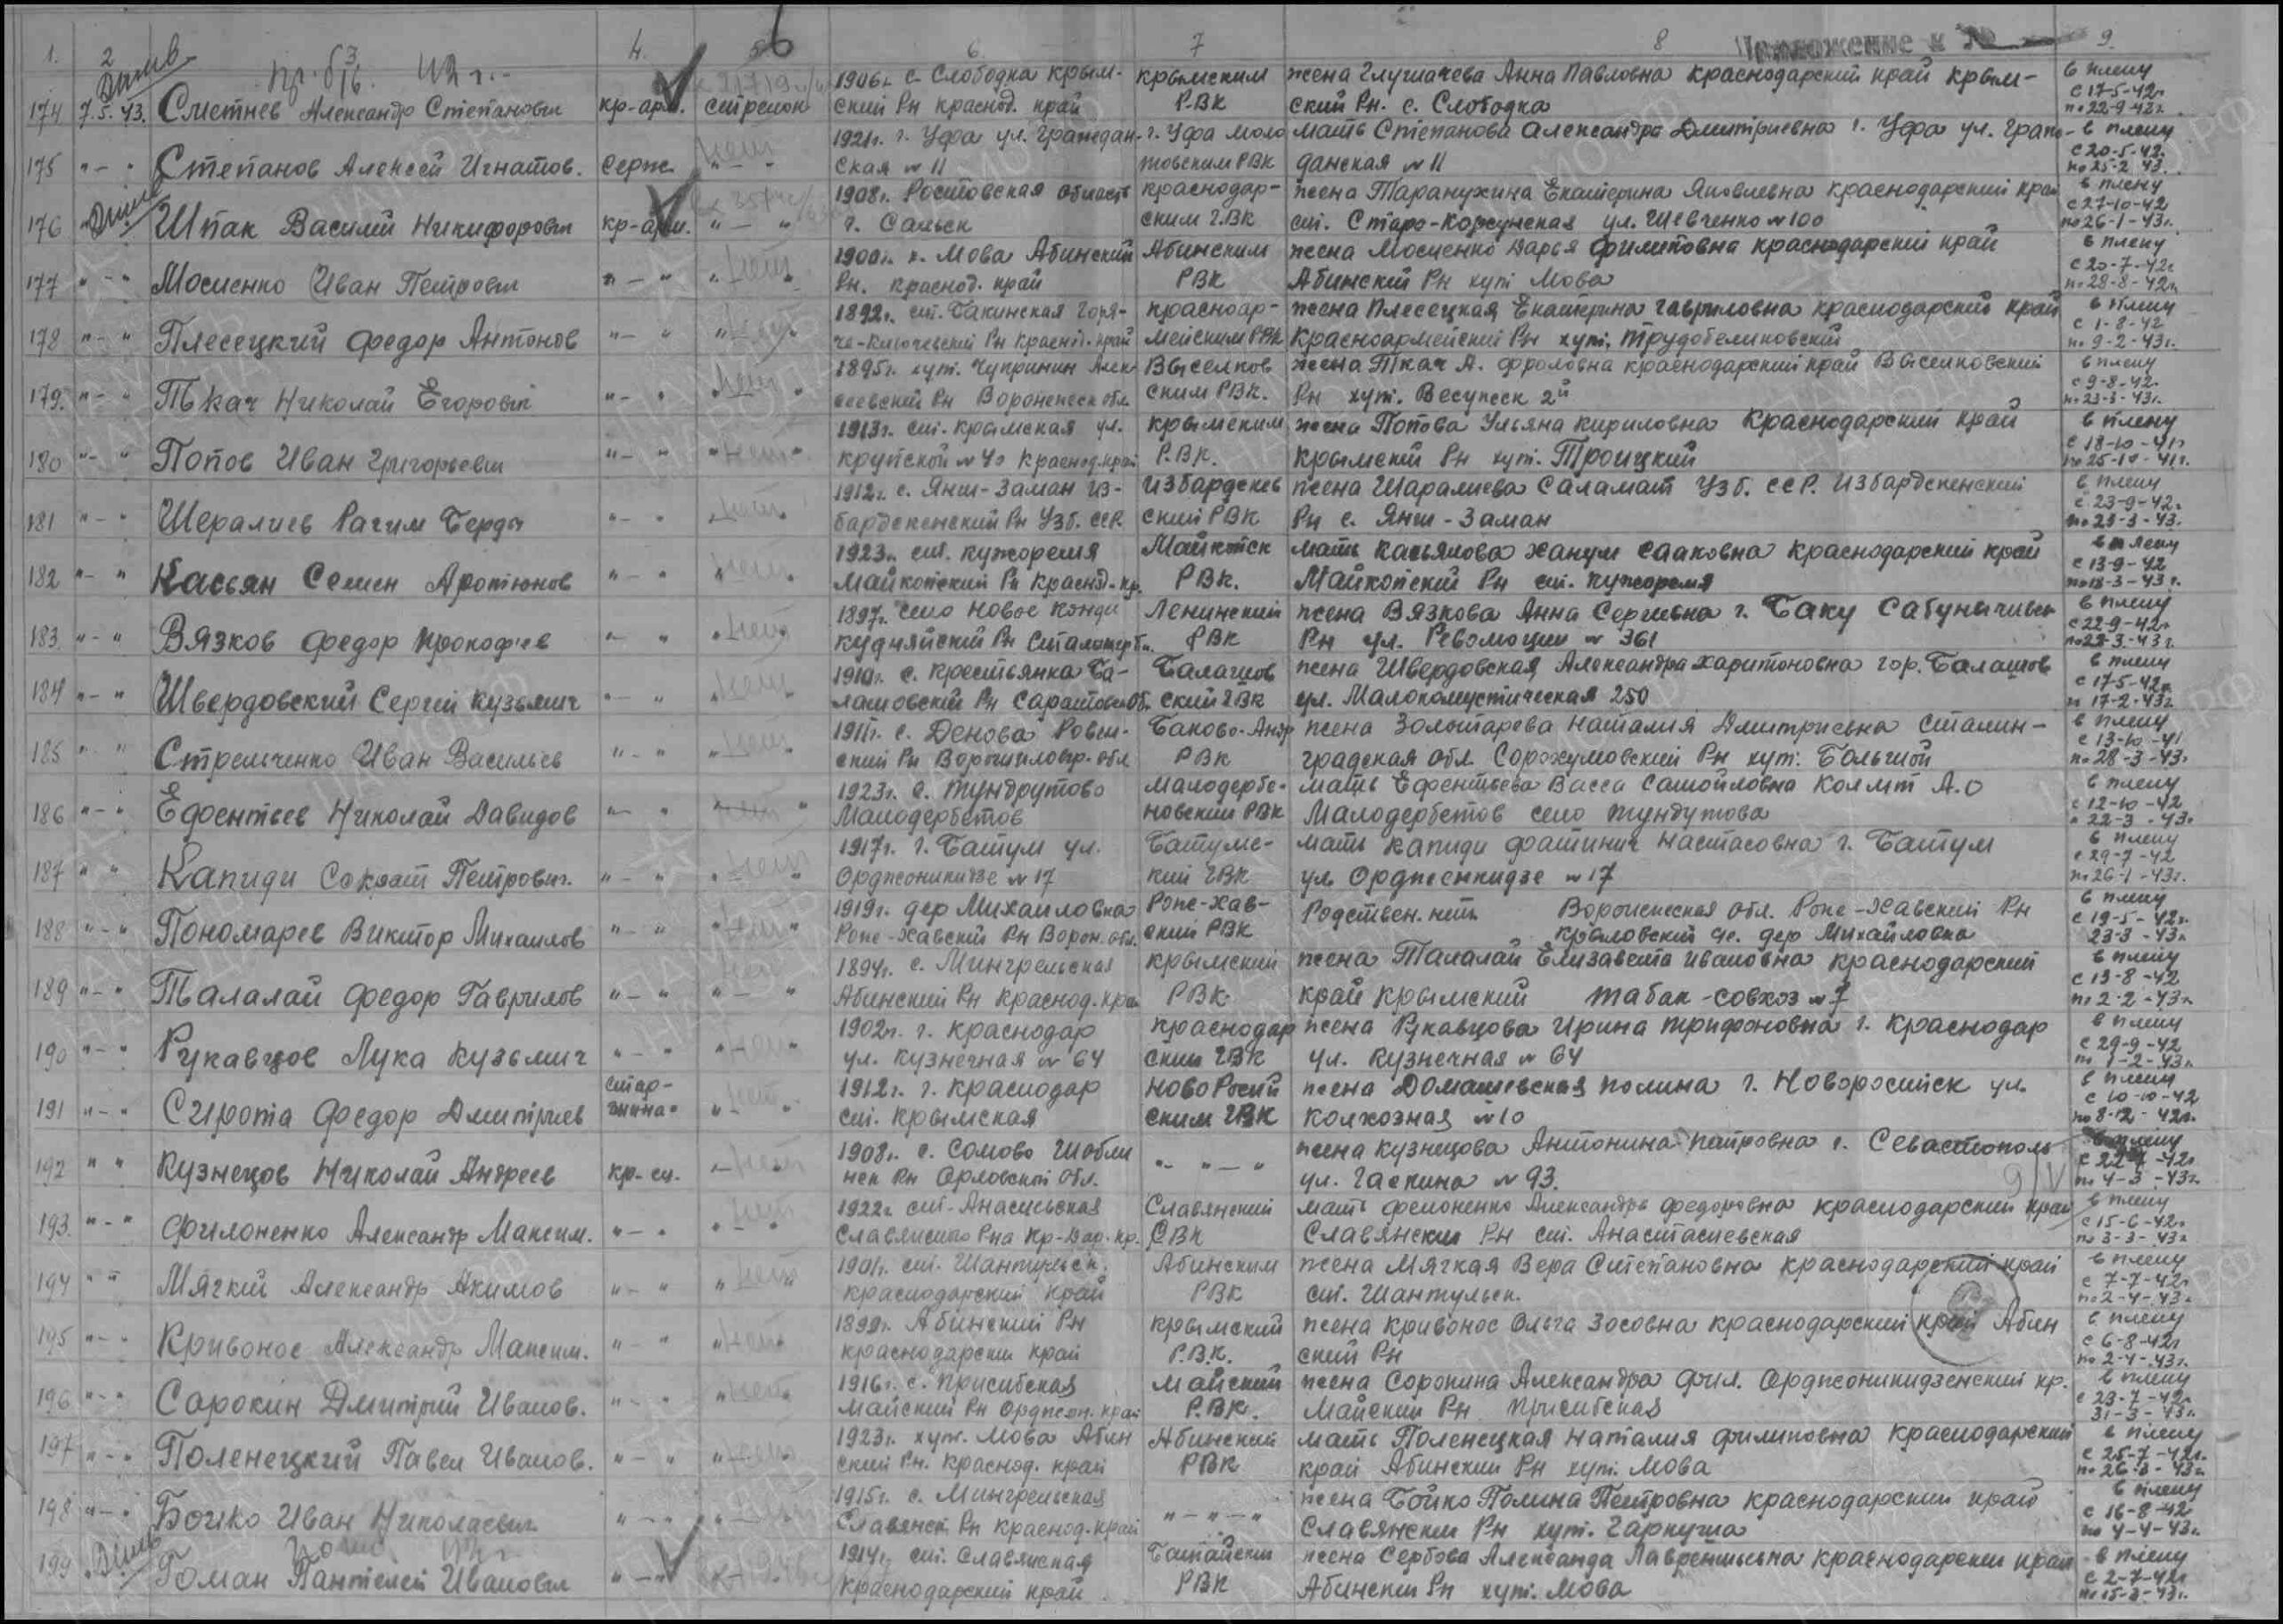 1. 2 3 4. 5 6 6. 7 8 Приложение к № 9.
174 7.5.43. Сметнев Александр Степанович кр-арм. стрелок 1906г. с. Слободка Крым- Крымским жена Глушачева Анна Павловна Краснодарский край Крым- в плену
ский Рн Краснод. край РВК ский Рн. с. Слободка с 17-5-42г. по 22-9-42г.
175 "-" Степанов Алексей Игнатов. серж. "-" 1921г. г. Уфа ул. Граждан- г. Уфа Моло мать Степанова Александра Дмитриевна г. Уфа ул. Граж- в плену
ская № 11 товским РВК данская № 11 с 20-5-42. по 25-2-43.
176 Шпак Василий Никифорович кр-арм. "-" 1908г. Ростовская область Краснодар- жена Таранухина Екатерина Яковлевна Краснодарский край в плену
г. Сальск ским ГВК ст. Старо-Корсунская ул. Шевченко № 100 с 27-10-42 по 26-1-43г.
177 "-" Мосиенко Иван Петрович "-" нет 1900г. х. Мова Абинский Абинским жена Мосиенко Дарья Филиповна Краснодарский край в плену
Рн. Краснод. край РВК Абинский Рн хут. Мова с 20-7-42г. по 28-8-42г.
178 "-" Плесецкий Федор Антонов "-" нет 1892г. ст. Бакинская Горя- Красноар- жена Плесецкая Екатерина Гавриловна Краснодарский край в плену
че-Ключевский Рн Краснод. край мейским РВК Красноармейский Рн хут. Трудобеликовский с 1-8-42 по 9-2-43г.
179. "-" Ткач Николай Егорович "-" нет 1895г. хут. Чупринин Алек- Выселков жена Ткач А. Фроловна Краснодарский край Выселковский в плену
сеевский Рн Воронежск обл. ским РВК. Рн хут. Бесунеск 2й с 9-8-42 по 23-3-43г.
180 "-" Попов Иван Григорьевич "-" нет 1913г. ст. Крымская ул. Крымским жена Попова Ульяна Кириловна Краснодарский край в плену
Крупской № 40 Краснод. край Р.ВК. Крымский Рн хут. Троицкий с 18-10-41г. по 25-10-41г.
181 "-" Шералиев Рагим Берды "-" нет 1912г. с. Янги-Заман Из- Избардекев жена Шаралиева Саламат Узб. ССР. Избардекенский в плену
бардекенский Рн Узб. ССР. ский РВК Рн с. Янги-Заман с 23-9-42. по 23-3-43.
182 "-" Касьян Семен Аротюнов "-" нет 1923г. ст. Кужорская Майкопск мать Касьянова Ханум Сааковна Краснодарский край в плену
Майкопский Рн Краснод-кр. РВК. Майкопский Рн ст. Кужорская с 13-9-42 по 13-3-43г.
183. "-" Вязков Федор Прокофьев "-" нет 1897г. село Новое Конди Ленинский жена Вязкова Анна Сергеевна г. Баку Сабунычивск в плену
РВК Рн ул. Революции № 361 с 22-9-42г. по 23-3-43г.
184 "-" Швердовский Сергей Кузьмич "-" нет 1910г. с. Крестьянка Ба- Балашов жена Швердовская Александра Харитоновна гор. Балашов в плену
лашовский Рн Саратовс Об. ский ГВК ул. Малокомустическая 250 с 17-5-42г. п 17-2-43г.
185 "-" Стрельченко Иван Васильев "-" нет 1911г. с. Денова Ровен- Баково-Антр жена Золотарева Наталия Дмитриевна Сталин-
ский Рн Ворошиловгр. обл РВК градская обл. Сорохумовский Рн хут. Большой в плену с 13-10-41 по 28-3-43г.
186 "-" Ефентьев Николай Давидов "-" нет 1923г. с. Тундрутово Малодербе- мать Ефентьева Васса Самойловна Колмт А.О в плену
Малодербетов новский РВК Малодербетов село Тундутова с 12-10-42 22-3-43г.
187 "-" Капиди Сократ Петрович. "-" нет 1917г. г. Батум ул. Батумс- мать Капиди Фатинич Настасовна г. Батум в плену
Орджоникидзе № 17 кий ГВК ул Орджонкидзе № 17 с 29-7-42 по 26-1-43г.
188 "-" Пономарев Виктор Михаилов "-" нет 1919г. дер Михаиловка Роже-Хав- Родствен. нет. Воронежская обл. Роже-Хавский Рн в плену
Роже-Хавский Рн Ворон. обл. ский РВК Крыловский дер Михайловка с 19-5-42г. 23-3-43г.
189 "-" Талалай Федор Гаврилов "-" "-" 1894г. с. Мингрельская Крымский жена Талалай Елизавета Ивановна Краснодарский в плену
Абинский Рн Краснод. край РВК край Крымский Табак-совхоз № 7 с 13-8-42 по 2-2-43г.
190 "-" Рукавцов Лука Кузьмич "-" нет 1902г. г. Краснодар Краснодар жена Рукавцова Ирина Трифоновна г. Краснодар в плену
ул. Кузнечная № 64 ским ГВК ул. Кузнечная № 64 с 29-9-42 по 1-2-43г.
191 "-" Сирота Федор Дмитриев стар-шина. нет 1912г. г. Краснодар Новоросий жена Домашевская Полина г. Новоросийск ул. в плену
ст. Крымская ским ГВК Колхозная № 10 с 10-10-42 по 8-12-42г.
192 "-" Кузнецов Николай Андреев кр-ец. нет 1908г. с. Сомово Шабли "-"-" жена Кузнецова Антонина Петровна г. Севастополь в плену
нск Рн Орловской обл. ул. Гаспина № 93. с 22-7-42г. по 4-3-43г.
193. "-" Филоненко Александр Максим. "-" нет 1922г. ст-Анасиевская Славянский мать Филоненко Александра Федоровна Краснодарский край в плену
Славянского Рна Кр-Дар. кр. РВК Славянский Рн ст. Анастасиевская с 15-6-42г. по 3-3-43г.
194 "-" Мягкий Александр Акимов "-" нет 1901г. ст. Шантульск. Абинским жена Мягкая Вера Степановна Краснодарский край в плену
Краснодарский край РВК ст. Шантульск. с 7-7-42г. по 2-4-43г.
195 "-" Кривонос Александр Максим. "-" нет 1899г. Абинский Рн Крымский жена Кривонос Ольга Зосовна Краснодарский край Абин в плену
Краснодарский край Р.В.К. ский Рн с 6-8-42г. по 2-4-43г.
196 "-" Сарокин Дмитрий Иванов. "-" нет 1916г. с. Присибская Майский жена Сорокина Александра Фил. Орджоникидзенский кр. в плену
Майский Рн Орджон. край Р.ВК. Майский Рн Присибская с 23-7-42г. 31-3-43г.
197 "-" Поленецкий Павел Иванов. "-" нет 1923г. хут. Мова Абин Абинский мать Поленецкая Наталия Филиповна Краснодарский в плену
ский Рн. Краснод. край РВК край Абинский Рн хут. Мова с 25-7-42г. по 26-3-43г.
198 "-" Бойко Иван Николаевич "-" 1915г. с. Мингрельская "-"-" жена Бойко Полина Петровна Краснодарский край в плену
Славянск Рн Краснод. край Славянский Рн хут. Гаркуша с 16-8-42г по 4-4-43г.
199 Гоман Пантелей Иванович "-" 1914г. ст. Славянская Батайский жена Сербова Александа Лаврентьевна Краснодарский край в плену
Краснодарский край РВК Абинский Рн хут. Мова с 2-7-42г по 15-3-43г.